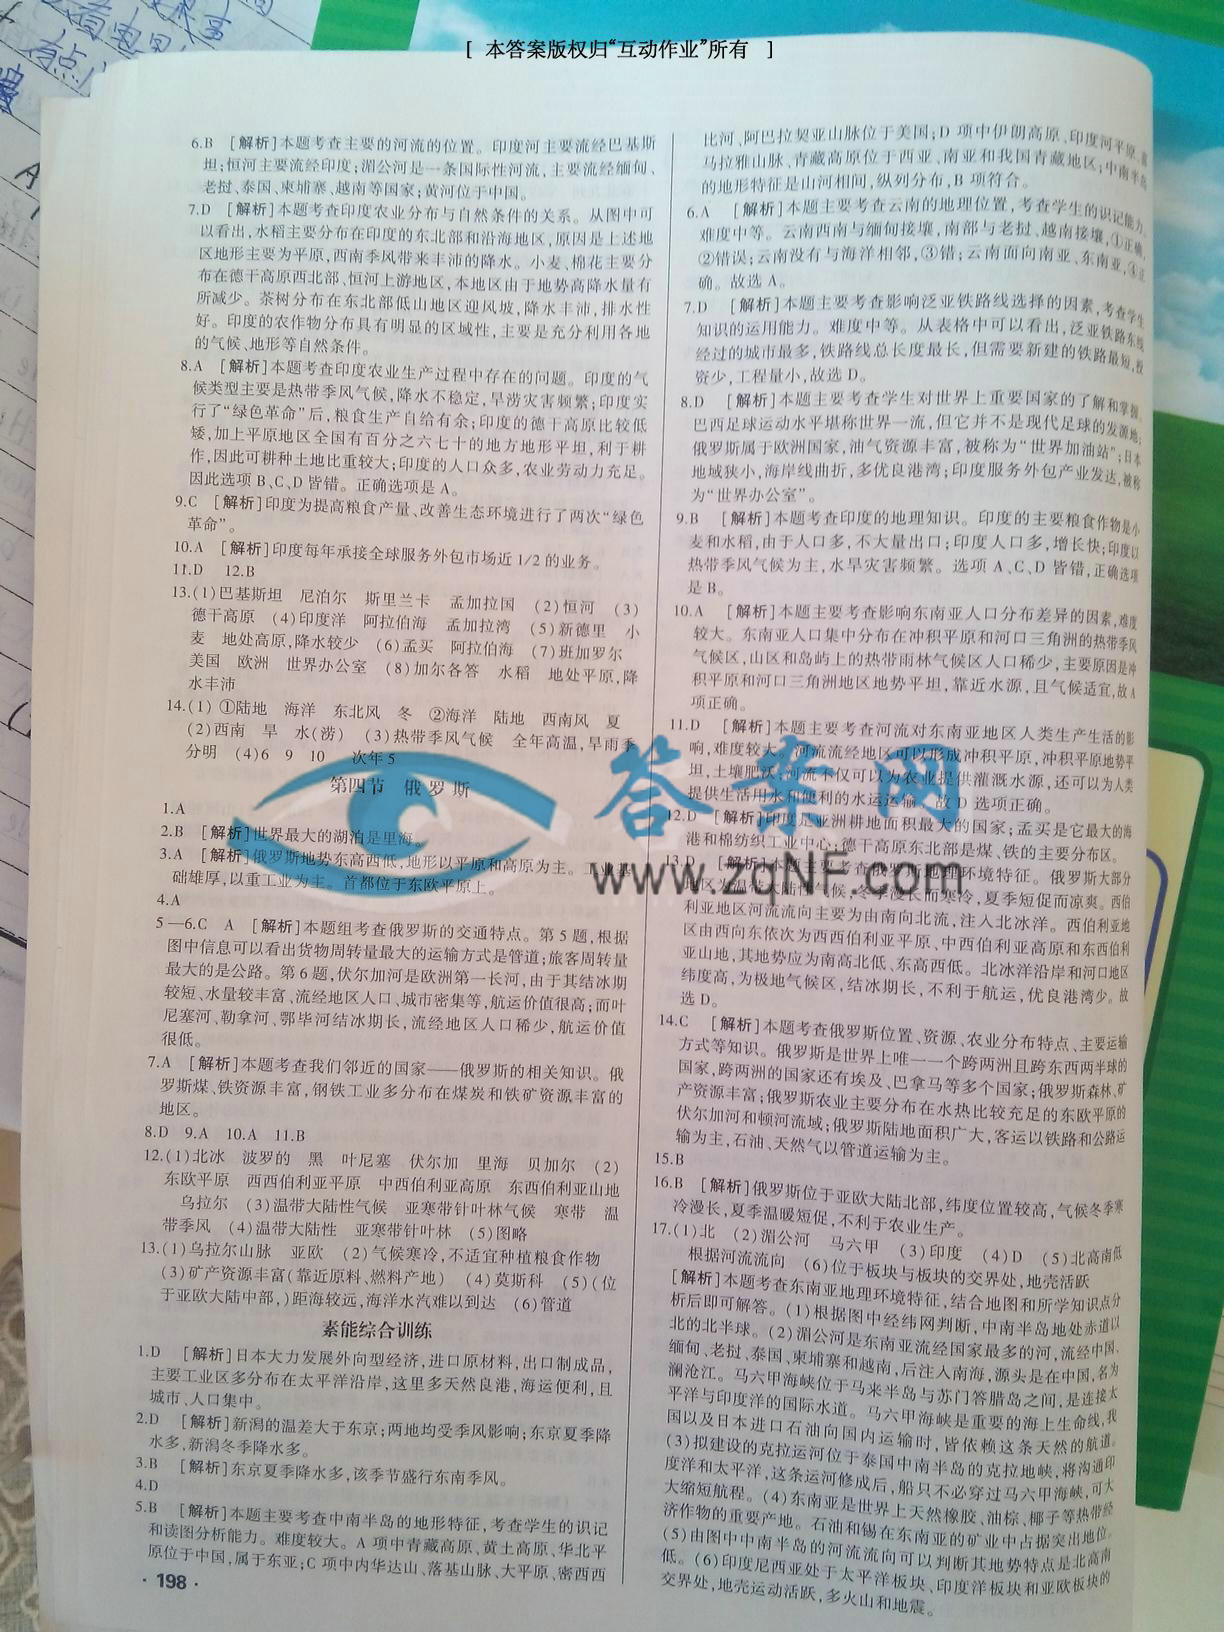 [ 本答案版权归“互动作业”所有 ]
6.B [解析]本题考查主要的河流的位置。印度河主要流经巴基斯
坦;恒河主要流经印度;湄公河是一条国际性河流,主要流经缅甸、
老挝、泰国、柬埔寨、越南等国家;黄河位于中国。
7.D [解析]本题考查印度农业分布与自然条件的关系。从图中可
以看出,水稻主要分布在印度的东北部和沿海地区,原因是上述地
区地形主要为平原,西南季风带来丰沛的降水。小麦、棉花主要分
布在德干高原西北部、恒河上游地区,本地区由于地势高降水量有
所减少。茶树分布在东北部低山地区迎风坡,降水丰沛,排水性
好。印度的农作物分布具有明显的区域性,主要是充分利用各地
的气候、地形等自然条件。
8.A [解析]本题考查印度农业生产过程中存在的问题。印度的气
候类型主要是热带季风气候,降水不稳定,旱涝灾害频繁;印度实
行了“绿色革命”后,粮食生产自给有余;印度的德干高原比较低
矮,加上平原地区全国有百分之六七十的地方地形平坦,利于耕
作,因此可耕种土地比重较大;印度的人口众多,农业劳动力充足。
因此选项B、C、D皆错。正确选项是A。
9.C [解析]印度为提高粮食产量、改善生态环境进行了两次“绿色
革命”。
10.A [解析]印度每年承接全球服务外包市场近1/2的业务。
11.D 12.B
13.(1)巴基斯坦 尼泊尔 斯里兰卡 孟加拉国 (2)恒河 (3)
德干高原 (4)印度洋 阿拉伯海 孟加拉湾 (5)新德里 小
麦 地处高原,降水较少 (6)孟买 阿拉伯海 (7)班加罗尔
美国 欧洲 世界办公室 (8)加尔各答 水稻 地处平原,降
水丰沛
14.(1) ①陆地 海洋 东北风 冬 ②海洋 陆地 西南风 夏
(2)西南 旱 水(涝) (3)热带季风气候 全年高温,旱雨季
分明 (4)6 9 10 次年5
第四节 俄罗斯
1.A
2.B [解析]世界最大的湖泊是里海。
3.A [解析]俄罗斯地势东高西低,地形以平原和高原为主。工业基
础雄厚,以重工业为主。首都位于东欧平原上。
4.A
5—6.C A [解析]本题组考查俄罗斯的交通特点。第5题,根据
图中信息可以看出货物周转量最大的运输方式是管道;旅客周转量
最大的是公路。第6题,伏尔加河是欧洲第一长河,由于其结冰期
较短、水量较丰富、流经地区人口、城市密集等,航运价值很高;而叶
尼塞河、勒拿河、鄂毕河结冰期长,流经地区人口稀少,航运价值
很低。
7.A [解析]本题考查我们邻近的国家——俄罗斯的相关知识。俄
罗斯煤、铁资源丰富,钢铁工业多分布在煤炭和铁矿资源丰富的
地区。
8.D 9.A 10.A 11.B
12.(1)北冰 波罗的 黑 叶尼塞 伏尔加 里海 贝加尔 (2)
东欧平原 西西伯利亚平原 中西伯利亚高原 东西伯利亚山地
乌拉尔 (3)温带大陆性气候 亚寒带针叶林气候 寒带 温
带季风 (4)温带大陆性 亚寒带针叶林 (5)图略
13.(1)乌拉尔山脉 亚欧 (2)气候寒冷,不适宜种植粮食作物
(3)矿产资源丰富(靠近原料、燃料产地) (4)莫斯科 (5)(位
于亚欧大陆中部,)距海较远,海洋水汽难以到达 (6)管道
素能综合训练
1.D [解析]日本大力发展外向型经济,进口原材料,出口制成品,
主要工业区多分布在太平洋沿岸,这里多天然良港,海运便利,且
城市、人口集中。
2.D [解析]新潟的温差大于东京;两地均受季风影响;东京夏季降
水多,新潟冬季降水多。
3.B [解析]东京夏季降水多,该季节盛行东南季风。
4.D
5.B [解析]本题主要考查中南半岛的地形特征,考查学生的识记
和读图分析能力。难度较大。A项中青藏高原、黄土高原、华北平
原位于中国,属于东亚;C项中内华达山、落基山脉、大平原、密西西
· 198 ·
比河、阿巴拉契亚山脉位于美国;D项中伊朗高原、印度河平原、喜
马拉雅山脉、青藏高原位于西亚、南亚和我国青藏地区;中南半岛
的地形特征是山河相间,纵列分布,B项符合。
6.A [解析]本题主要考查云南的地理位置,考查学生的识记能力。
难度中等。云南西南与缅甸接壤,南部与老挝、越南接壤,①正确,
②错误;云南没有与海洋相邻,③错;云南面向南亚、东南亚,④正
确。故选A。
7.D [解析]本题主要考查影响泛亚铁路线选择的因素,考查学生
知识的运用能力。难度中等。从表格中可以看出,泛亚铁路东线
经过的城市最多,铁路线总长度最长,但需要新建的铁路最短,投
资少,工程量小,故选D。
8.D [解析]本题主要考查学生对世界上重要国家的了解和掌握。
巴西足球运动水平堪称世界一流,但它并不是现代足球的发源地;
俄罗斯属于欧洲国家,油气资源丰富,被称为“世界加油站”;日本
地域狭小,海岸线曲折,多优良港湾;印度服务外包产业发达,被称
为“世界办公室”。
9.B [解析]本题考查印度的地理知识。印度的主要粮食作物是小
麦和水稻,由于人口多,不大量出口;印度人口多,增长快;印度以
热带季风气候为主,水旱灾害频繁。选项A、C、D皆错,正确选项
是B。
10.A [解析]本题主要考查影响东南亚人口分布差异的因素,难度
较大。东南亚人口集中分布在冲积平原和河口三角洲的热带季风
气候区,山区和岛屿上的热带雨林气候区人口稀少,主要原因是冲
积平原和河口三角洲地区地势平坦,靠近水源,且气候适宜,故A
项正确。
11.D [解析]本题主要考查河流对东南亚地区人类生产生活的影
响,难度较大。河流流经地区可以形成冲积平原,冲积平原地势平
坦,土壤肥沃;河流不仅可以为农业提供灌溉水源,还可以为人类
提供生活用水和便利的水运运输。故D选项正确。
12.D [解析]印度是亚洲耕地面积最大的国家;孟买是它最大的海
港和棉纺织工业中心;德干高原东北部是煤、铁的主要分布区。
13.D [解析]本题主要考查俄罗斯地理环境特征。俄罗斯大部分
地区为温带大陆性气候,冬季漫长而寒冷,夏季短促而凉爽。西伯
利亚地区河流流向主要为由南向北流,注入北冰洋。西伯利亚地
区由西向东依次为西西伯利亚平原、中西伯利亚高原和东西伯利
亚山地,其地势应为南高北低、东高西低。北冰洋沿岸和河口地区
纬度高,为极地气候区,结冰期长,不利于航运,优良港湾少。故
选D。
14.C [解析]本题考查俄罗斯位置、资源、农业分布特点、主要运输
方式等知识。俄罗斯是世界上唯一一个跨两洲且跨东西两半球的
国家,跨两洲的国家还有埃及、巴拿马等多个国家;俄罗斯森林、矿
产资源丰富;俄罗斯农业主要分布在水热比较充足的东欧平原的
伏尔加河和顿河流域;俄罗斯陆地面积广大,客运以铁路和公路运
输为主,石油、天然气以管道运输为主。
15.B
16.B [解析]俄罗斯位于亚欧大陆北部,纬度位置较高,气候冬季寒
冷漫长,夏季温暖短促,不利于农业生产。
17.(1)北 (2)湄公河 马六甲 (3)印度 (4)D (5)北高南低
根据河流流向 (6)位于板块与板块的交界处,地壳活跃
[解析]本题考查东南亚地理环境特征,结合地图和所学知识点分
析后即可解答。(1)根据图中经纬网判断,中南半岛地处赤道以
北的北半球。(2)湄公河是东南亚流经国家最多的河,流经中国、
缅甸、老挝、泰国、柬埔寨和越南,后注入南海,源头是在中国,名为
澜沧江。马六甲海峡位于马来半岛与苏门答腊岛之间,是连接太
平洋与印度洋的国际水道。马六甲海峡是重要的海上生命线,我
国以及日本进口石油向国内运输时,皆依赖这条天然的航道。
(3)拟建设的克拉运河位于泰国中南半岛的克拉地峡,将沟通印
度洋和太平洋,这条运河修成后,船只不必穿过马六甲海峡,可大
大缩短航程。(4)东南亚是世界上天然橡胶、油棕、椰子等热带经
济作物的重要产地。石油和锡在东南亚的矿业中占据突出地位。
(5)由图中中南半岛的河流流向可以判断其地势特点是北高南
低。(6)印度尼西亚处于太平洋板块、印度洋板块和亚欧板块的
交界处,地壳运动活跃,多火山和地震。
答案网
www.zqNF.com